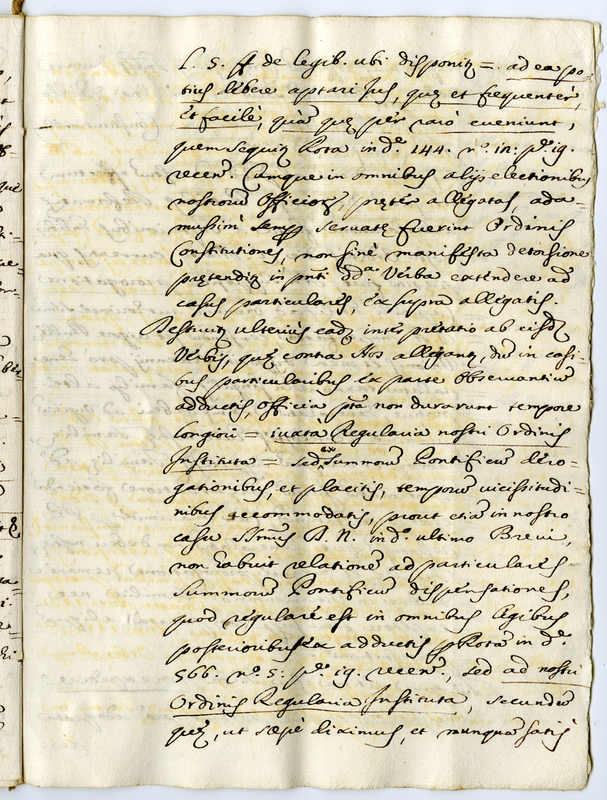 L. 5. ff de legib. ubi disponitʒ =. ad ea po-
tius debere aptari Jus, quę et frequentèr,
Et facilè, quàm quę pèr rarò eveniunt,
quem sequitʒ Rota in d.ª 144. n.º 12: p.ª 19.
recen. Cumque in omnibus alijs electionibus
nostroru Officiorʒ, pręter allegatas, ada=
mussim semp servatę fuerint Ordinis
Constitutiones, non sinè manifesta detorsione
prętenditʒ in pnti dd.ª Verba extendere ad
casus particulares, ex supra allegatis.
Destruitʒ ulterius eadʒ interprętatio ab eisdʒ
Verbis, quę contra Nos allegantʒ, du in casi-
bus particularibus ex parte Observantiu
adductis, Officia pta non durarunt tempore
longiori = iuxta Regularia nostri Ordinis
Instituta = sed ex Summoru Pontificu dero-
gationibus, et placitis, temporu vicissitudi-
nibus accommodatis, prout etia in nostro
casu SSmus D. N. in d.º ultimo Brevi,
non habuit relatione ad particulares
Summoru Pontificu dispensationes,
quod regulare est in omnibus legibus
posterioribus ex adductis p Rota in d.ª
566. n.º 5: p.ª 19. recen., sed ad nostri
Ordinis Regularia Instituta, secundu
quę, ut sępè diximus, et nunqua satis